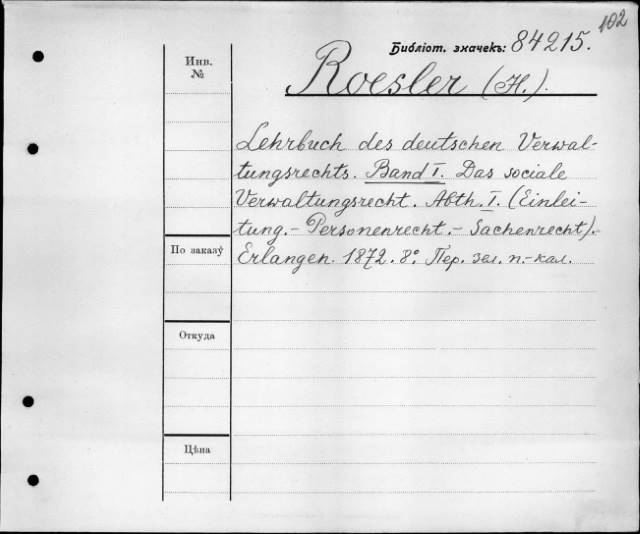 102
Библіот. значекъ: 84215.
Инв.
№
Roesler (H.).
Lehrbuch des deutschen Verwal-
tungsrechts. Band I. Das sociale
Verwaltungsrecht. Abth. I. (Einlei-
tung.- Personenrecht.- Sachenrecht).-
По заказу
Erlangen. 1872. 8°. Пер. зел. п.-кал.
Откуда
Цѣна